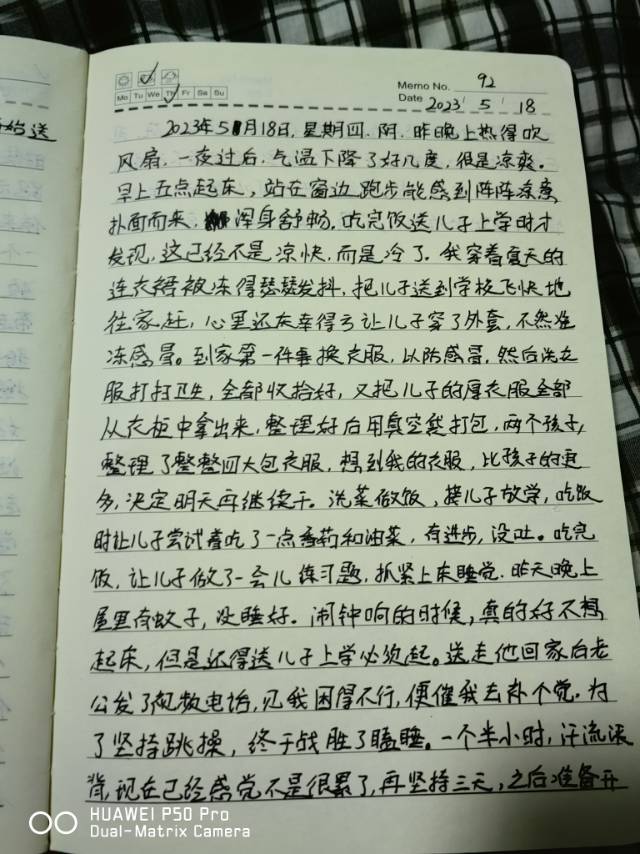 始送
Memo No. 92
Mo Tu We Th Fr Sa Su
Date 2023 / 5 / 18
2023年5月18日,星期四.阴.昨晚上热得吹
风扇.一夜过后.气温下降了好几度,很是凉爽.
早上五点起床,站在窗边跑步能感到阵阵凉意
扑面而来,浑身舒畅.吃完饭送儿子上学时才
发现,这已经不是凉快.而是冷了.我穿着夏天的
连衣裙被冻得瑟瑟发抖,把儿子送到学校飞快地
往家赶,心里还庆幸得亏让儿子穿了外套,不然准
冻感冒.到家第一件事换衣服,以防感冒,然后洗衣
服打扫卫生,全部收拾好,又把儿子的厚衣服全部
从衣柜中拿出来,整理好后用真空袋打包.两个孩子,
整理了整整四大包衣服,想到我的衣服,比孩子的更
多,决定明天再继续干.洗菜做饭,接儿子放学,吃饭
时让儿子尝试着吃了一点香菇和油菜,有进步,没吐.吃完
饭,让儿子做了一会儿练习题,抓紧上床睡觉.昨天晚上
屋里有蚊子,没睡好.闹钟响的时候,真的好不想
起床,但是还得送儿子上学必须起.送走他回家后老
公发了视频电话,见我困得不行,便催我去补个觉.为
了坚持跳操,终于战胜了瞌睡.一个半小时,汗流浃
背,现在已经感觉不是很累了,再坚持三天,之后准备开
HUAWEI P50 Pro
Dual-Matrix Camera